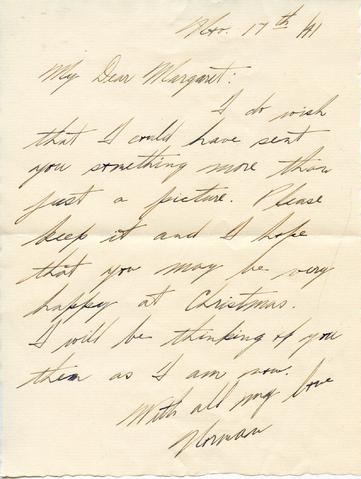 Nov. 17th /41
My Dear Margaret:
I do wish
that I could have sent
you something more than
just a picture. Please
keep it and I hope
that you may be very
happy at Christmas.
I will be thinking of you
then as I am now.
With all my love
Norman